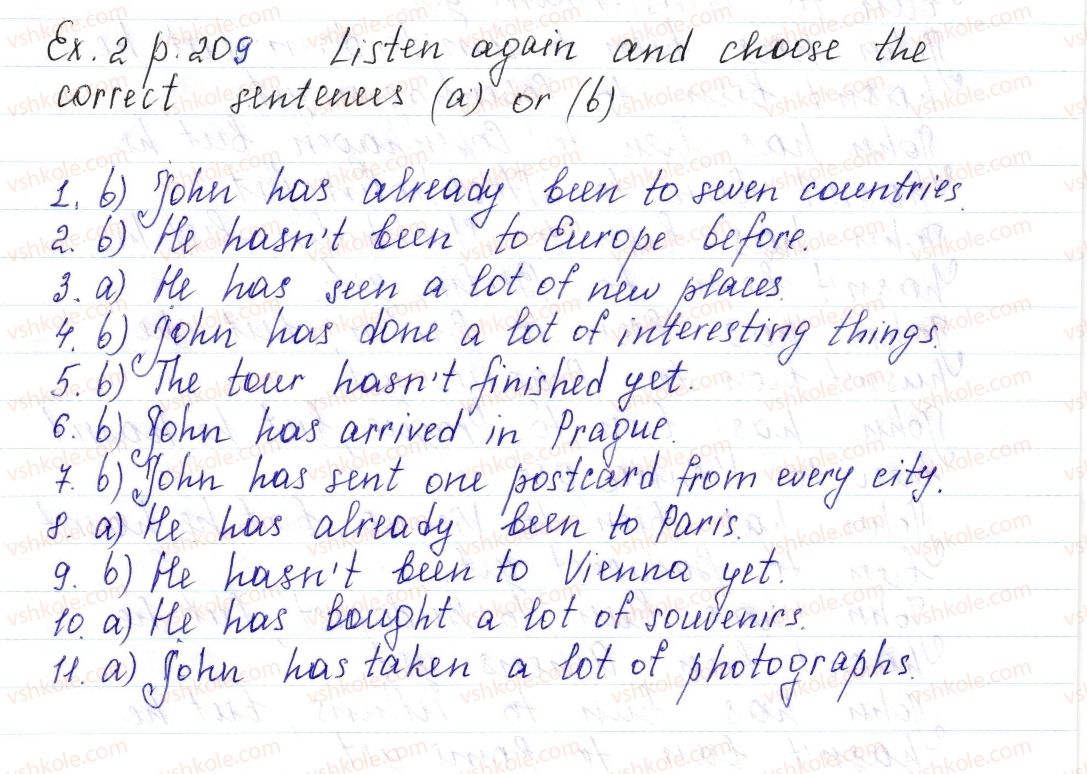 Ex. 2 p. 209 Listen again and choose the
correct sentences (a) or (b)
1. b) John has already been to seven countries.
2. b) He hasn't been to Europe before.
3. a) He has seen a lot of new places.
4. b) John has done a lot of interesting things.
5. b) The tour hasn't finished yet.
6. b) John has arrived in Prague.
7. b) John has sent one postcard from every city.
8. a) He has already been to Paris.
9. b) He hasn't been to Vienna yet.
10. a) He has bought a lot of souvenirs.
11. a) John has taken a lot of photographs.
vshkole.com